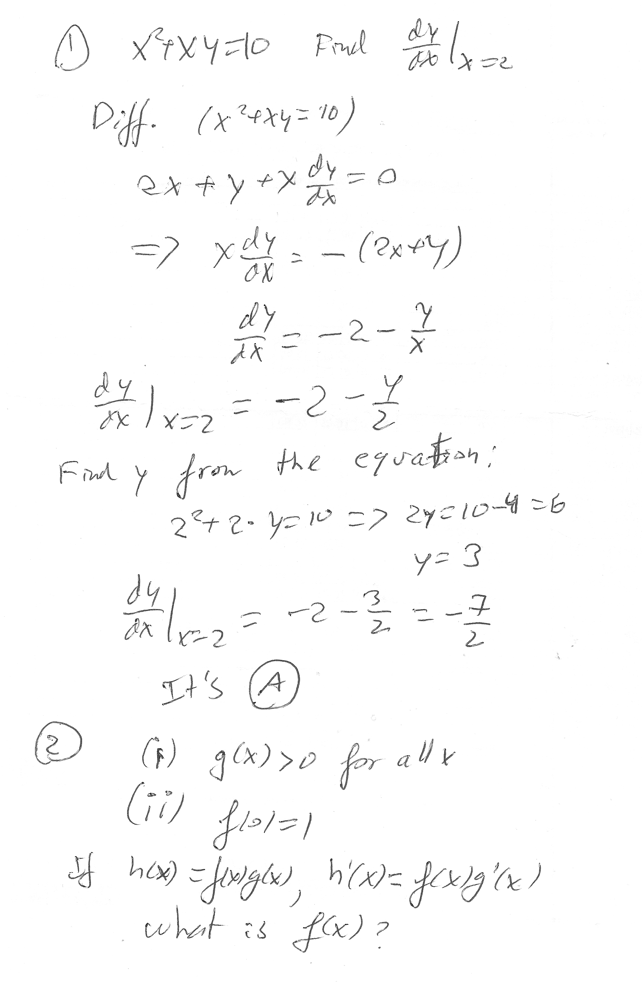 ① x²+xy=10 Find dy/dx|x=2
Diff. (x²+xy=10)
2x+y+x dy/dx=0
=> x dy/dx = -(2x+y)
dy/dx = -2 - y/x
dy/dx|x=2 = -2 - y/2
Find y from the equation:
2²+2·y=10 => 2y=10-4=6
y=3
dy/dx|x=2 = -2 - 3/2 = -7/2
It's Ⓐ
② (i) g(x)>0 for all x
(ii) f(0)=1
If h(x)=f(x)g(x), h'(x)=f(x)g'(x)
what is f(x)?